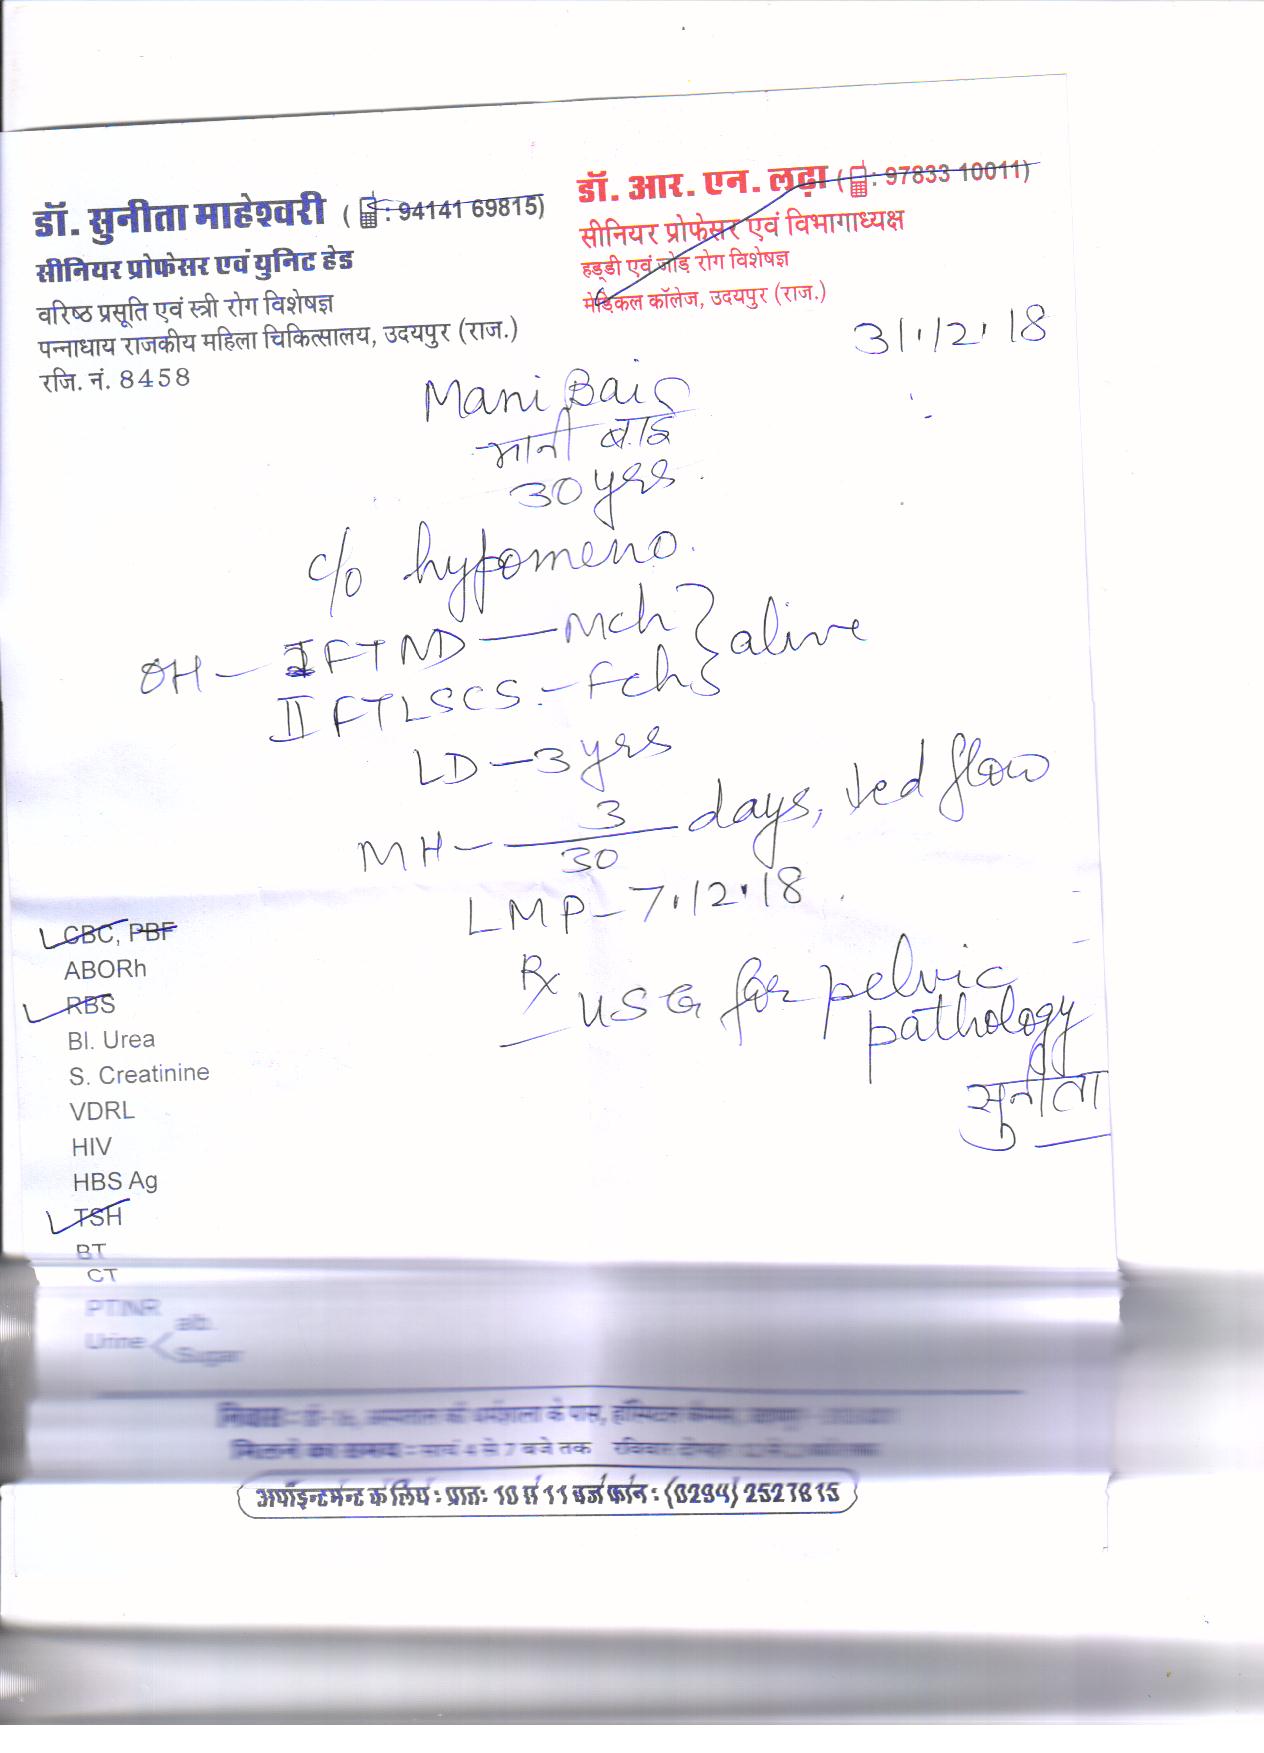 डॉ. सुनीता माहेश्वरी ( : 94141 69815)
सीनियर प्रोफेसर एवं युनिट हेड
वरिष्ठ प्रसूति एवं स्त्री रोग विशेषज्ञ
पन्नाधाय राजकीय महिला चिकित्सालय, उदयपुर (राज.)
रजि. नं. 8458
डॉ. आर. एन. लढ़ा ( : 97833 10011)
सीनियर प्रोफेसर एवं विभागाध्यक्ष
हड्डी एवं जोड़ रोग विशेषज्ञ
मेडिकल कॉलेज, उदयपुर (राज.)
31.12.18
Mani Bai
मानी बाई
30 yrs.
c/o hypomeno.
OH - I FTND - Mch } alive
II FTLSCS. - Fch
LD - 3 yrs
MH - 3/30 days, ↓ed flow
LMP - 7.12.18.
Rx
USG for pelvic
pathology
सुनीता
CBC, PBF
ABORh
RBS
Bl. Urea
S. Creatinine
VDRL
HIV
HBS Ag
TSH
BT
CT
PTINR
Urine < alb.
Sugar
मिलने का समय : सायं 4 से 7 बजे तक
अपॉइन्टमेन्ट के लिये : प्रातः 10 से 11 बजे फोन : (0294) 2527815